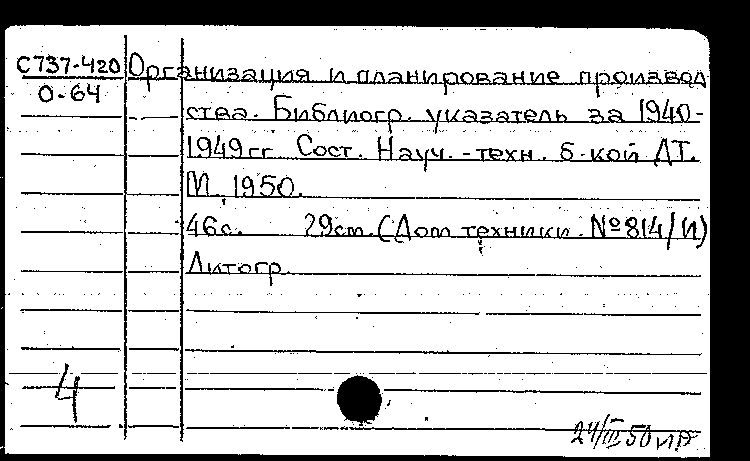 С737-420 Организация и планирование производ
О-64 ства. Библиогр. указатель за 1940-
1949гг Сост. Науч.-техн. б-кой ДТ.
М., 1950.
46с. 29см. (Дом техники. №814/И)
Литогр.
4
24/III 50